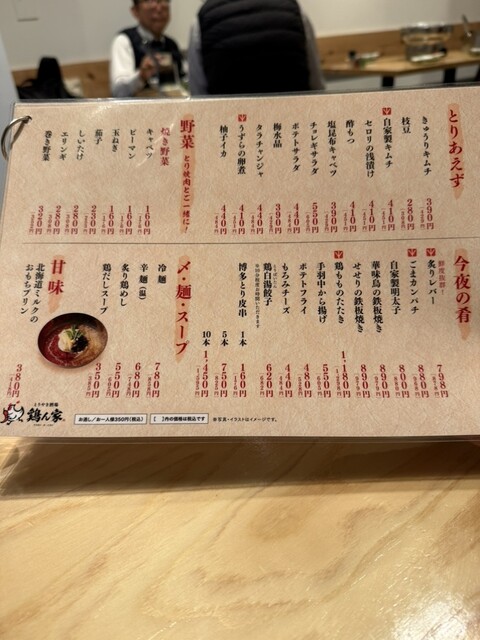 とりあえず
きゅうりキムチ 390円
枝豆 280円
自家製キムチ 410円
セロリの浅漬け 410円
酢もつ 410円
塩昆布キャベツ 390円
チョレギサラダ 550円
ポテトサラダ 440円
梅水晶 390円
タラチャンジャ 440円
うずらの卵煮 410円
柚子イカ 440円
野菜 とり焼肉とご一緒に!
焼き野菜
キャベツ 160円
ピーマン 160円
玉ねぎ 160円
茄子 230円
しいたけ 280円
エリンギ 280円
巻き野菜 320円
今夜の肴
鮮度抜群!
炙りレバー 798円
ごまカンパチ 780円
自家製明太子
華味鳥の鉄板焼き 890円
せせりの鉄板焼き 890円
鶏もものたたき 1,180円
手羽中から揚げ 550円
ポテトフライ 480円
もろみチーズ 440円
鶏白湯餃子 620円
博多とり皮串 1本 160円
5本 750円
10本 1,450円
〆・麺・スープ
冷麺 780円
辛麺(温) 680円
炙り鶏めし 550円
鶏だしスープ 350円
甘味
北海道ミルクの
おもちプリン 380円
とりやき酒場
鶏ん家
お通し/お一人様350円(税込)
[ ]内の価格は税込です
※写真・イラストはイメージです。